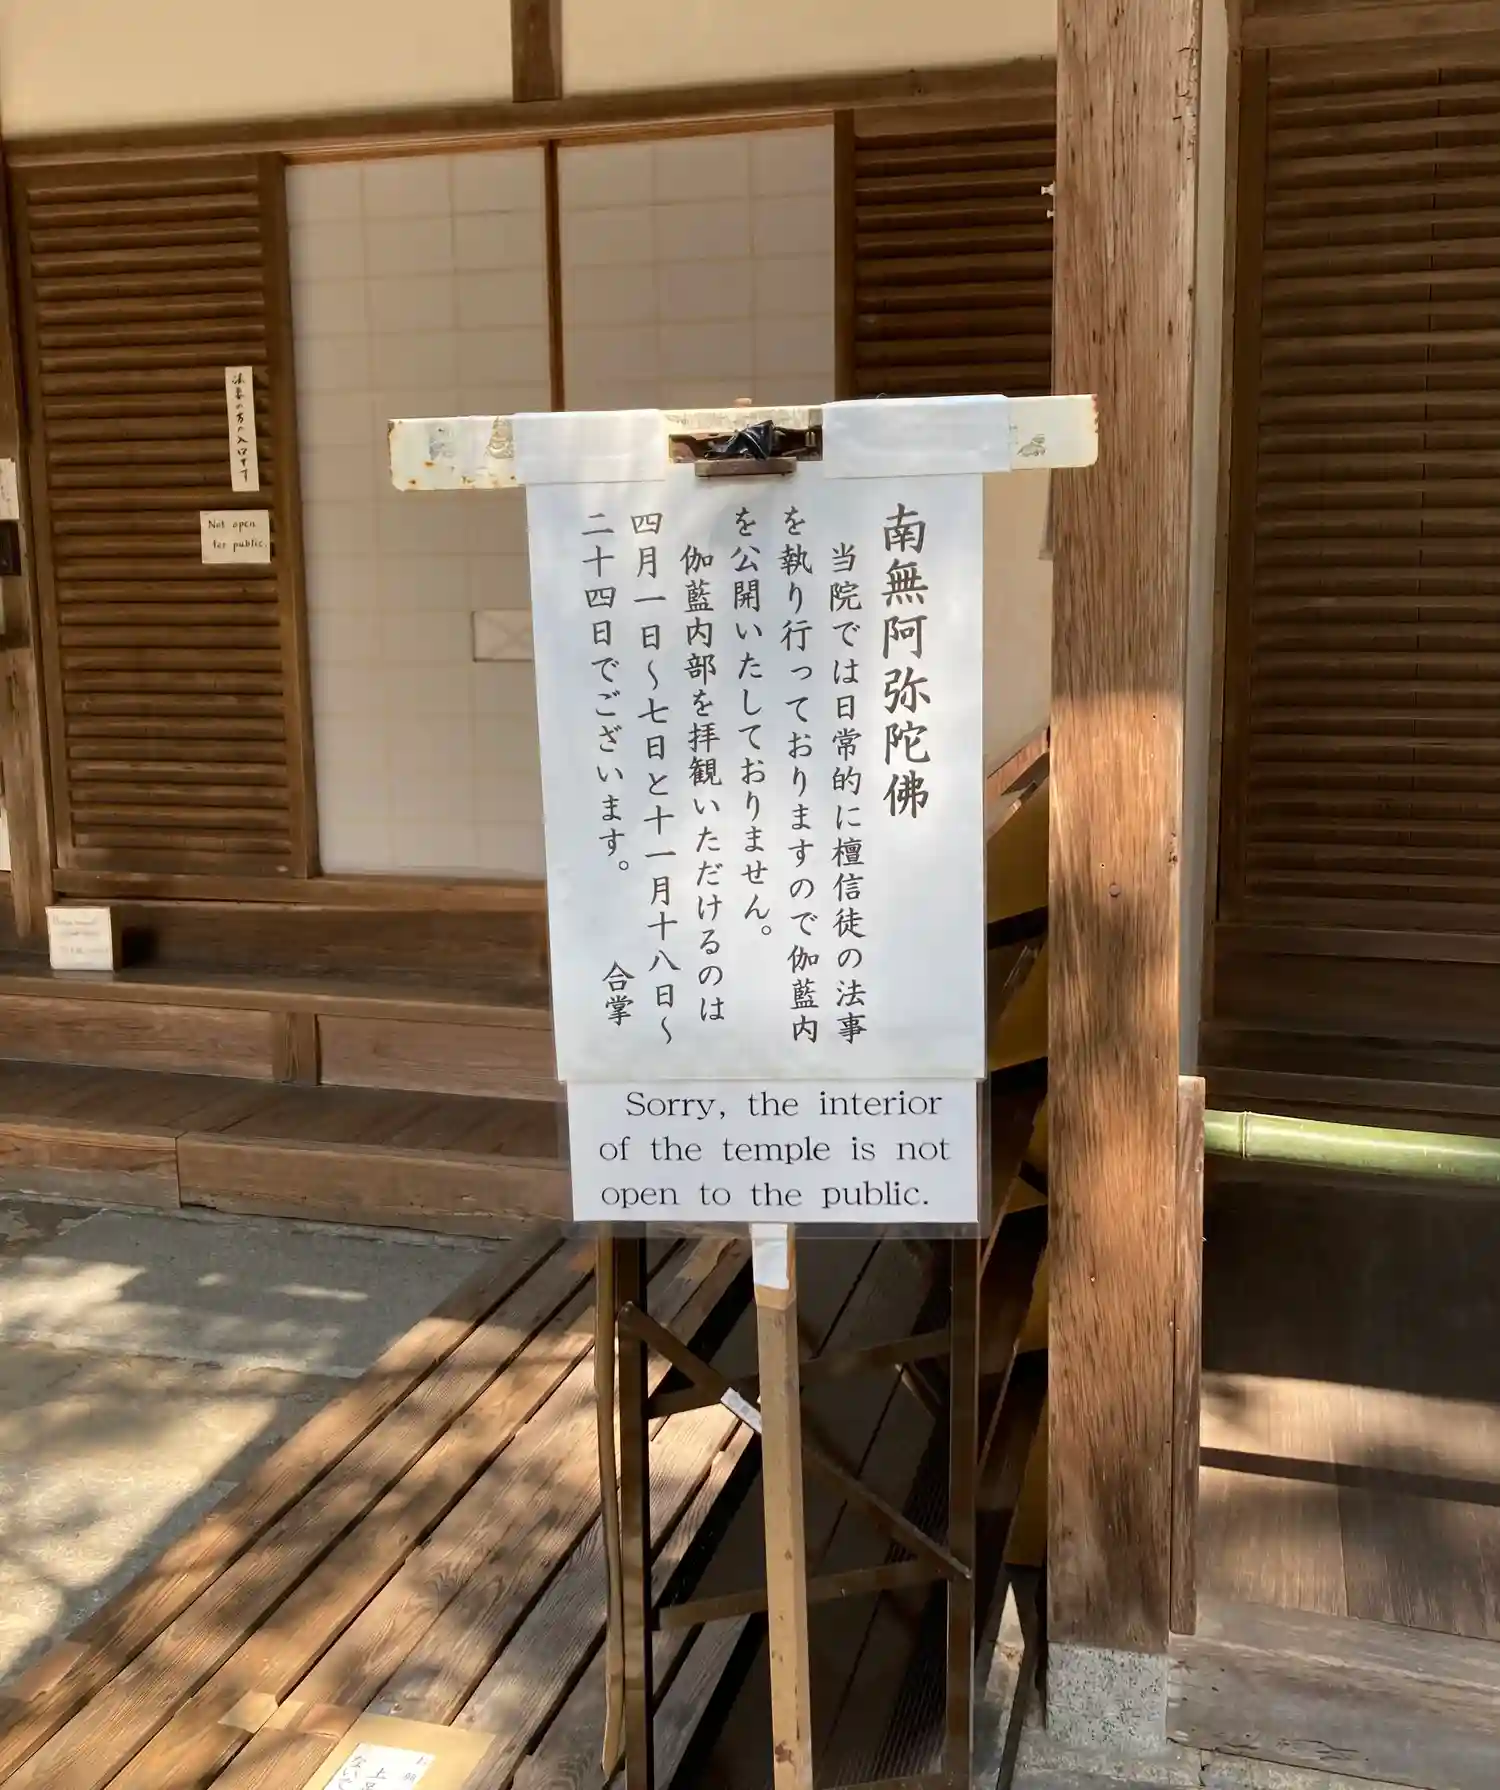 南無阿弥陀佛
当院では日常的に檀信徒の法事
を執り行っておりますので伽藍内
を公開いたしておりません。
伽藍内部を拝観いただけるのは
四月一日〜七日と十一月十八日〜
二十四日でございます。
合掌
Sorry, the interior
of the temple is not
open to the public.
法要の方の入口です
Not open
for public.